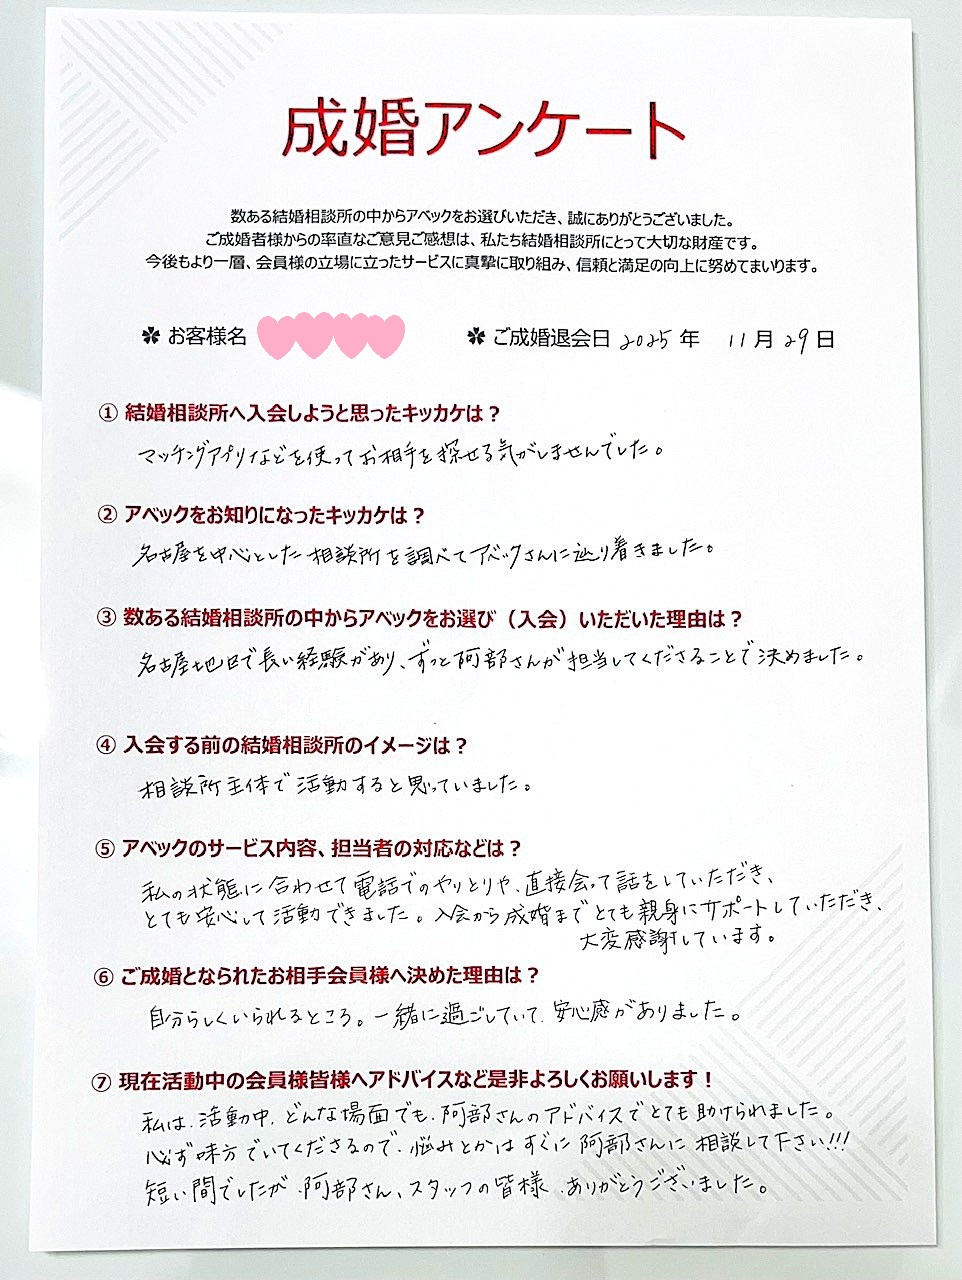 成婚アンケート
数ある結婚相談所の中からアベックをお選びいただき、誠にありがとうございました。
ご成婚者様からの率直なご意見ご感想は、私たち結婚相談所にとって大切な財産です。
今後もより一層、会員様の立場に立ったサービスに真摯に取り組み、信頼と満足の向上に努めてまいります。
✿ お客様名 ✿ ご成婚退会日 2025 年 11 月 29 日
① 結婚相談所へ入会しようと思ったキッカケは？
マッチングアプリなどを使ってお相手を探せる気がしませんでした。
② アベックをお知りになったキッカケは？
名古屋を中心とした相談所を調べてアベックさんに辿り着きました。
③ 数ある結婚相談所の中からアベックをお選び（入会）いただいた理由は？
名古屋地区で長い経験があり、ずっと阿部さんが担当してくださることで決めました。
④ 入会する前の結婚相談所のイメージは？
相談所主体で活動すると思っていました。
⑤ アベックのサービス内容、担当者の対応などは？
私の状態に合わせて電話でのやりとりや、直接会って話をしていただき、
とても安心して活動できました。入会から成婚までとても親身にサポートしていただき、
大変感謝しています。
⑥ ご成婚となられたお相手会員様へ決めた理由は？
自分らしくいられるところ。一緒に過ごしていて、安心感がありました。
⑦ 現在活動中の会員様皆様へアドバイスなど是非よろしくお願いします！
私は、活動中、どんな場面でも、阿部さんのアドバイスでとても助けられました。
必ず味方でいてくださるので、悩みとかはすぐに阿部さんに相談して下さい!!!
短い間でしたが、阿部さん、スタッフの皆様、ありがとうございました。